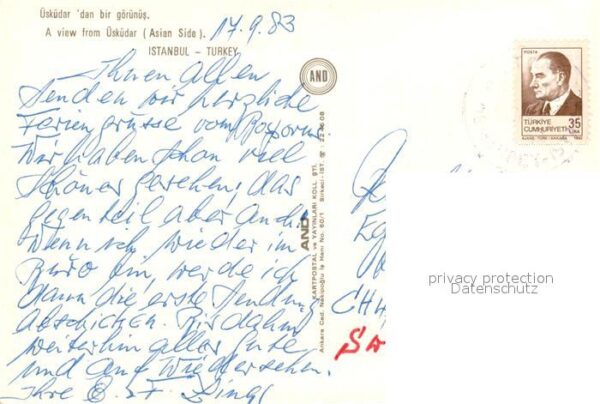 Üsküdar 'dan bir görünüş.
A view from Üsküdar (Asian Side).
17.9.83
ISTANBUL - TURKEY
Ihnen allen
senden wir herzliche
Feriengrüsse vom Bosporus
Wir haben schon viel
schönes gesehen, das
Gegenteil aber auch.
Wenn ich wieder im
Büro bin, werde ich
dann die erste Sendung
abschicken. Bis dahin
weiterhin alles Gute
und auf Wiedersehen.
Ihre
AND
AND
KARTPOSTAL ve YAYINLARI KOLL. ŞTİ.
POSTA
TÜRKİYE
CUMHURİYETİ
35
LİRA
CH
privacy protection
Datenschutz